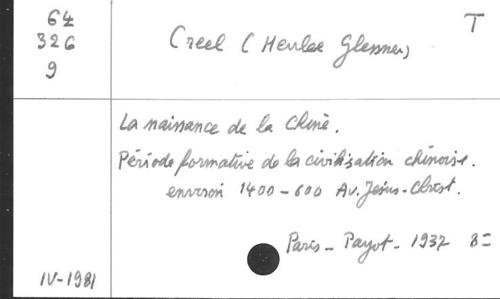 64
326
9
Creel (Herlee Glessner)
T
La naissance de la Chine.
Période formative de la civilisation chinoise.
environ 1400-600 Av. Jésus-Christ.
Paris - Payot - 1937 8=
IV-1981